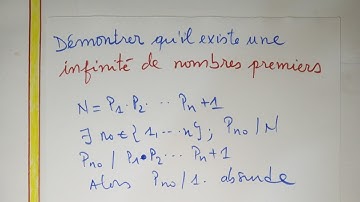 Démontrer qu'il existe une
infinité de nombres premiers
N = P1 . P2 . ... Pn + 1
∃ no ∈ {1, ... n} ; Pno / N
Pno / P1 • P2 ... Pn + 1
Alors Pno / 1. absurde